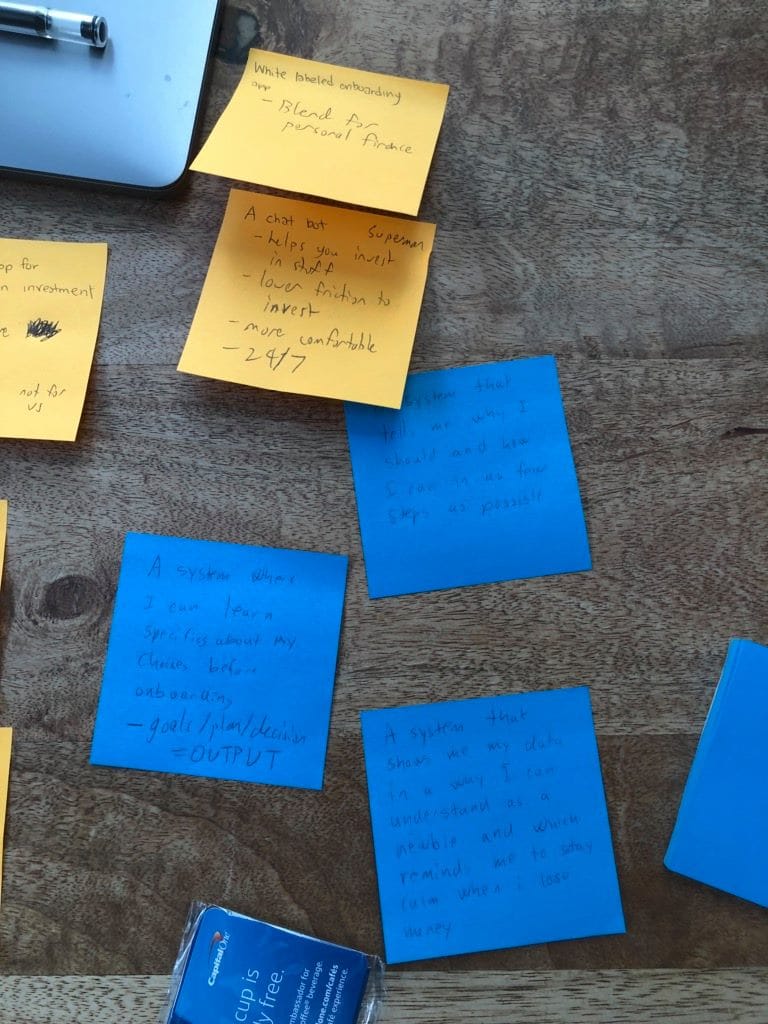 White labeled onboarding
app
- Blend for
personal finance
A chat bot Superman
- helps you invest
in stuff
- lower friction to
invest
- more comfortable
- 24/7
pp for
n investment
re
not for
us
system that
tells me why I
should and how
I can in as few
steps as possible
A system where
I can learn
specifics about my
choices before
onboarding
- goals/plan/decision
= OUTPUT
A system that
shows me my data
in a way I can
understand as a
newbie and which
reminds me to stay
calm when i lose
money
Capital One
cup is
y free.
mbassador for
offee® beverage.
one.com/cafés
afé experience.